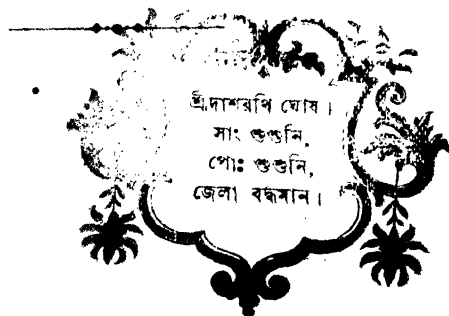 শ্রীদাশরথি ঘোষ।
সাং শুশুনি,
পোঃ শুশুনি,
জেলা বর্দ্ধমান।